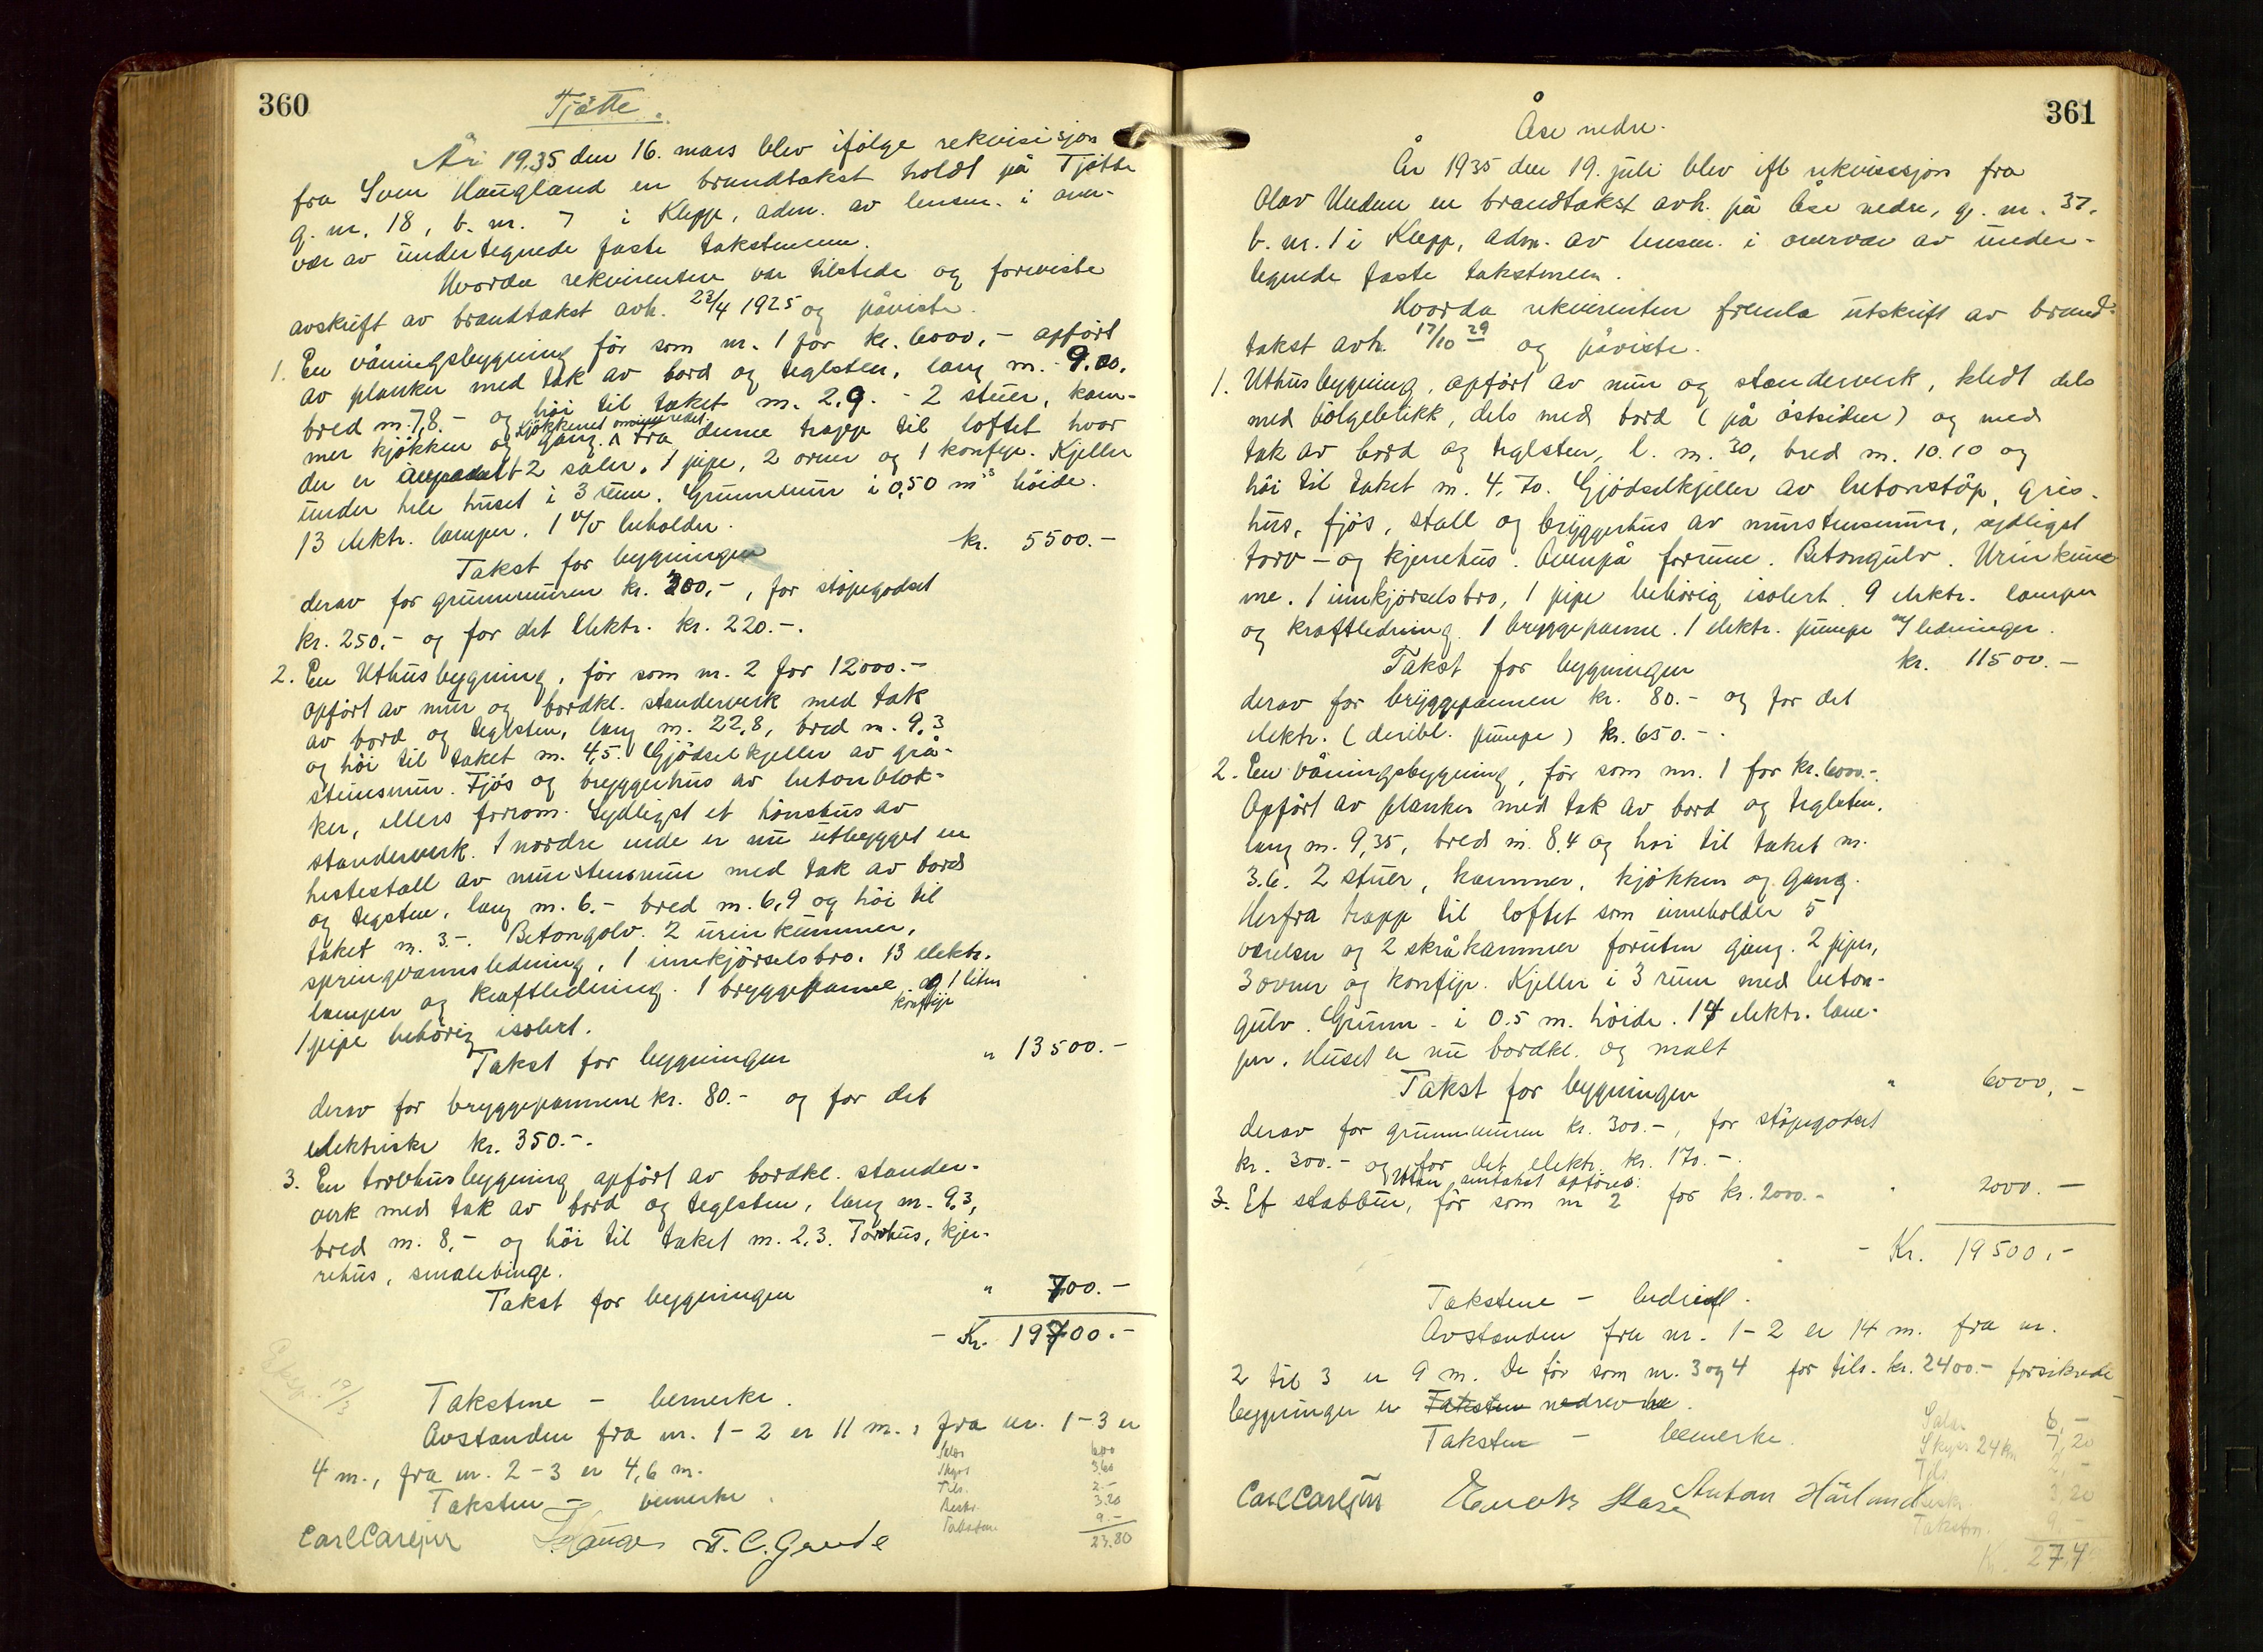 360
Tjøtte.
År 1935 den 16. mars blev ifølge rekvisisjon
fra Sven Haugland en brandtakst holdt på Tjøtte
g. nr. 18, b. nr. 7 i Klepp, adm. av lensm. i over-
vær av undertegnede faste takstmenn.
Hvorda rekvirenten var tilstede og foreviste
avskrift av brandtakst avh. 23/4 1925 og påviste.
1. En våningsbygning før som nr. 1 for kr. 6000,- opført
av planker med tak av bord og teglsten, lang m. 9.00,
bred m. 7,8.- og høi til taket m. 2,9. - 2 stuer, kam-
kjøkkenet ominnredet
mer kjøkken og gang. ^ Fra denne trapp til loftet hvor
der er 2 saler, 1 pipe, 2 ovner og 1 komfyr. Kjeller
under hele huset i 3 rum. Grunnmur i 0,50 m's høide.
13 elektr. lamper. 1 v/v beholder.
Takst for bygningen kr. 5500.-
derav for grunnmuren kr. 300,-, for støpegodset
kr. 250,- og for det elektr. kr. 220.-.
2. En Uthusbygning, før som nr. 2 for 12000.-
opført av mur og bordkl. standerverk med tak
av bord og teglsten, lang m. 22,8, bred m. 9,3
og høi til taket m. 4,5. Gjødselkjeller av grå-
stensmur. Fjøs og bryggerhus av betonblok-
ker, ellers forrom. Sydligst et hønsehus av
standerverk. I nordre ende er nu utbygget en
hestestall av murstensmur med tak av bord
og tegsten, lang m. 6.- bred m. 6,9 og høi til
taket m. 3.-. Betongolv. 2 urinkummer,
springvannsledning, 1 innkjørselsbro. 13 elektr.
lamper og kraftledning. 1 bryggepanne og 1 liten
komfyr
1 pipe behørig isolert.
Takst for bygningen " 13500.-
derav for bryggepannene kr. 80.- og for det
elektriske kr. 350.-.
3. En torvhusbygning opført av bordkl. stander-
verk med tak av bord og teglsten, lang m. 9,3,
bred m. 8,- og høi til taket m. 2,3. Torvhus, kjer-
rehus, smalebinge.
Takst for bygningen " 700.-
- Kr. 19700.-
Eksp. 19/3
Takstene - bemerke.
Avstanden fra nr. 1-2 er 11 m., fra nr. 1-3 er
4 m., fra nr. 2-3 er 4,6 m.
Takstene - bemerke.
Salær 6.00
Skyss 3.60
Tils. 2.-
Beskr. 3.20
Takstm 9.-
23.80
Carl Carlsen T. C. Grude
361
Åse nedre.
År 1935 den 19. juli blev ifl. rekvisisjon fra
Olav Undem en brandtakst avh. på Åse nedre, g. nr. 37,
b. nr. 1 i Klepp, adm. av lensm. i overvær av under-
tegnede faste takstmenn.
Hvorda rekvirenten fremla utskrift av brand-
takst avh. 17/10 29 og påviste.
1. Uthusbygning, opført av mur og standerverk, kledt dels
med bølgeblikk, dels med bord (på østsiden) og med
tak av bord og teglsten, l. m. 30, bred m. 10.10 og
høi til taket m. 4,70. Gjødselkjeller av betonstøp, gris-
hus, fjøs, stall og bryggerhus av murstensmur, sydligst
torv- og kjerrehus. Ovenpå forrum. Betongulv. Urinkum-
me. 1 innkjørselsbro, 1 pipe behørig isolert. 9 elektr. lamper
og kraftledning. 1 bryggepanne. 1 elektr. pumpe m/ ledninger.
Takst for bygningen kr. 11500.-
derav for bryggepannen kr. 80.- og for det
elektr. (deribl. pumpe) kr. 650.-.
2. En våningsbygning, før som nr. 1 for kr. 6000.-.
Opført av planker med tak av bord og teglsten,
lang m. 9,35, bred m. 8,4 og høi til taket m.
3.6. 2 stuer, kammer, kjøkken og gang.
Herfra trapp til loftet som inneholder 5
værelser og 2 skråkammer foruten gang. 2 piper,
3 ovner og komfyr. Kjeller i 3 rum med beton-
gulv. Grunn- i 0.5 m. høide. 14 elektr. lam-
per. Huset er nu bordkl. og malt
Takst for bygningen " 6000,-
derav for grunnmuren kr. 300.-, for støpegodset
kr. 300.- og for det elektr. kr. 170.-.
Uten omtakst opføres:
3. Et stabbur, før som nr 2 for kr. 2000.- " 2000.-
- Kr. 19500,-
Takstene -
Avstanden fra nr. 1-2 er 14 m. fra nr.
2 til 3 er 9 m. De før som nr. 3 og 4 for tils. kr. 2400.- forsikrede
bygninger er nedrevne.
Takstene - bemerke.
Salær 6,-
Skyss 24 km 7,20
Tils. 2,-
Beskr. 3,20
Takstm. 9.-
Kr. 27,4
Carl Carlsen Enok Hase Anton Hårland